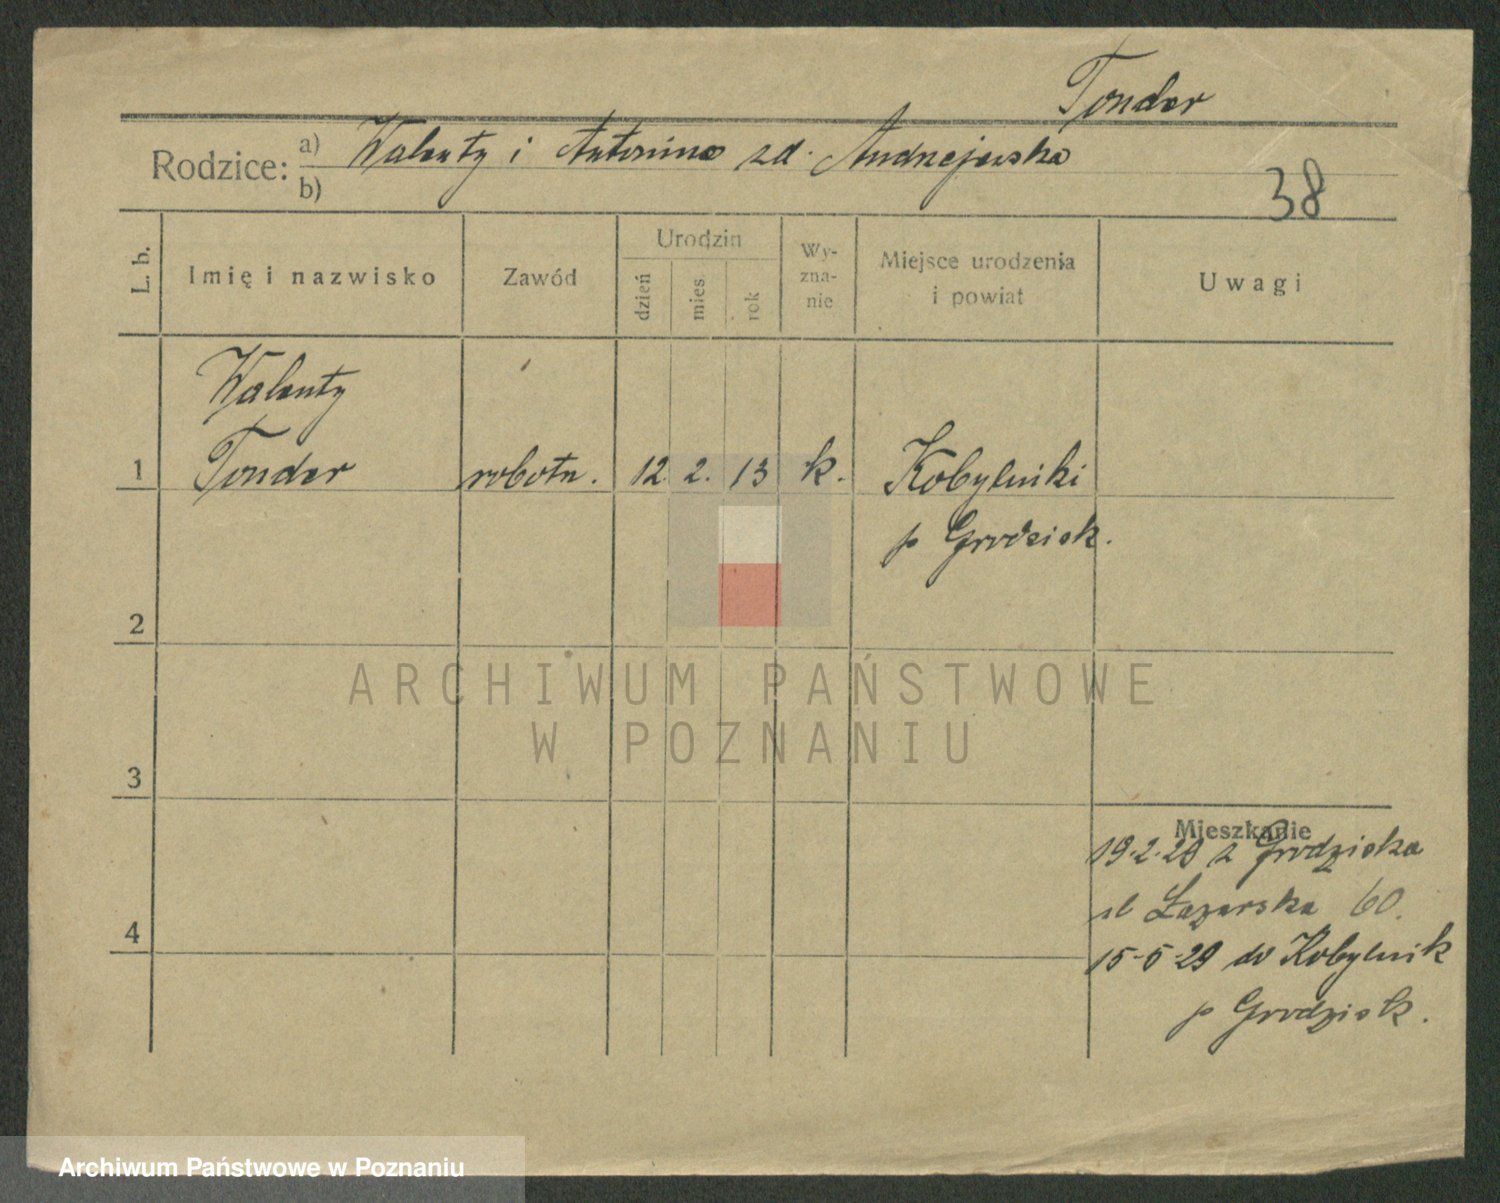 Tonder
Rodzice: a) Walenty i Antonina zd. Andrzejewska
b)
38
L. b.
Imię i nazwisko
Zawód
Urodzin
dzień
mies.
rok
Wy-
zna-
nie
Miejsce urodzenia
i powiat
Uwagi
Walenty
1 Tonder robotn. 12. 2. 13 k. Kobylniki
p Grodzisk.
2
ARCHIWUM PAŃSTWOWE
W POZNANIU
3
Mieszkanie
19.2.29 z Grodziska
ul Łazarska 60.
4
15-5-29 do Kobylnik
p Grodzisk.
Archiwum Państwowe w Poznaniu